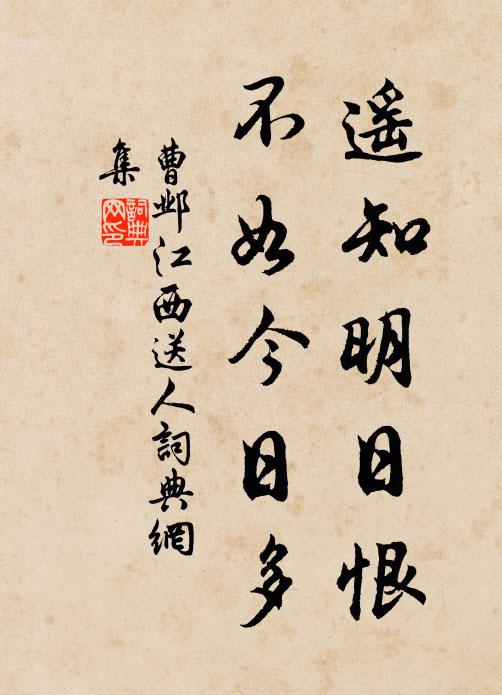 遥知明日恨
不如今日多
曹邺江西送人詞典網
集
詞典
网印